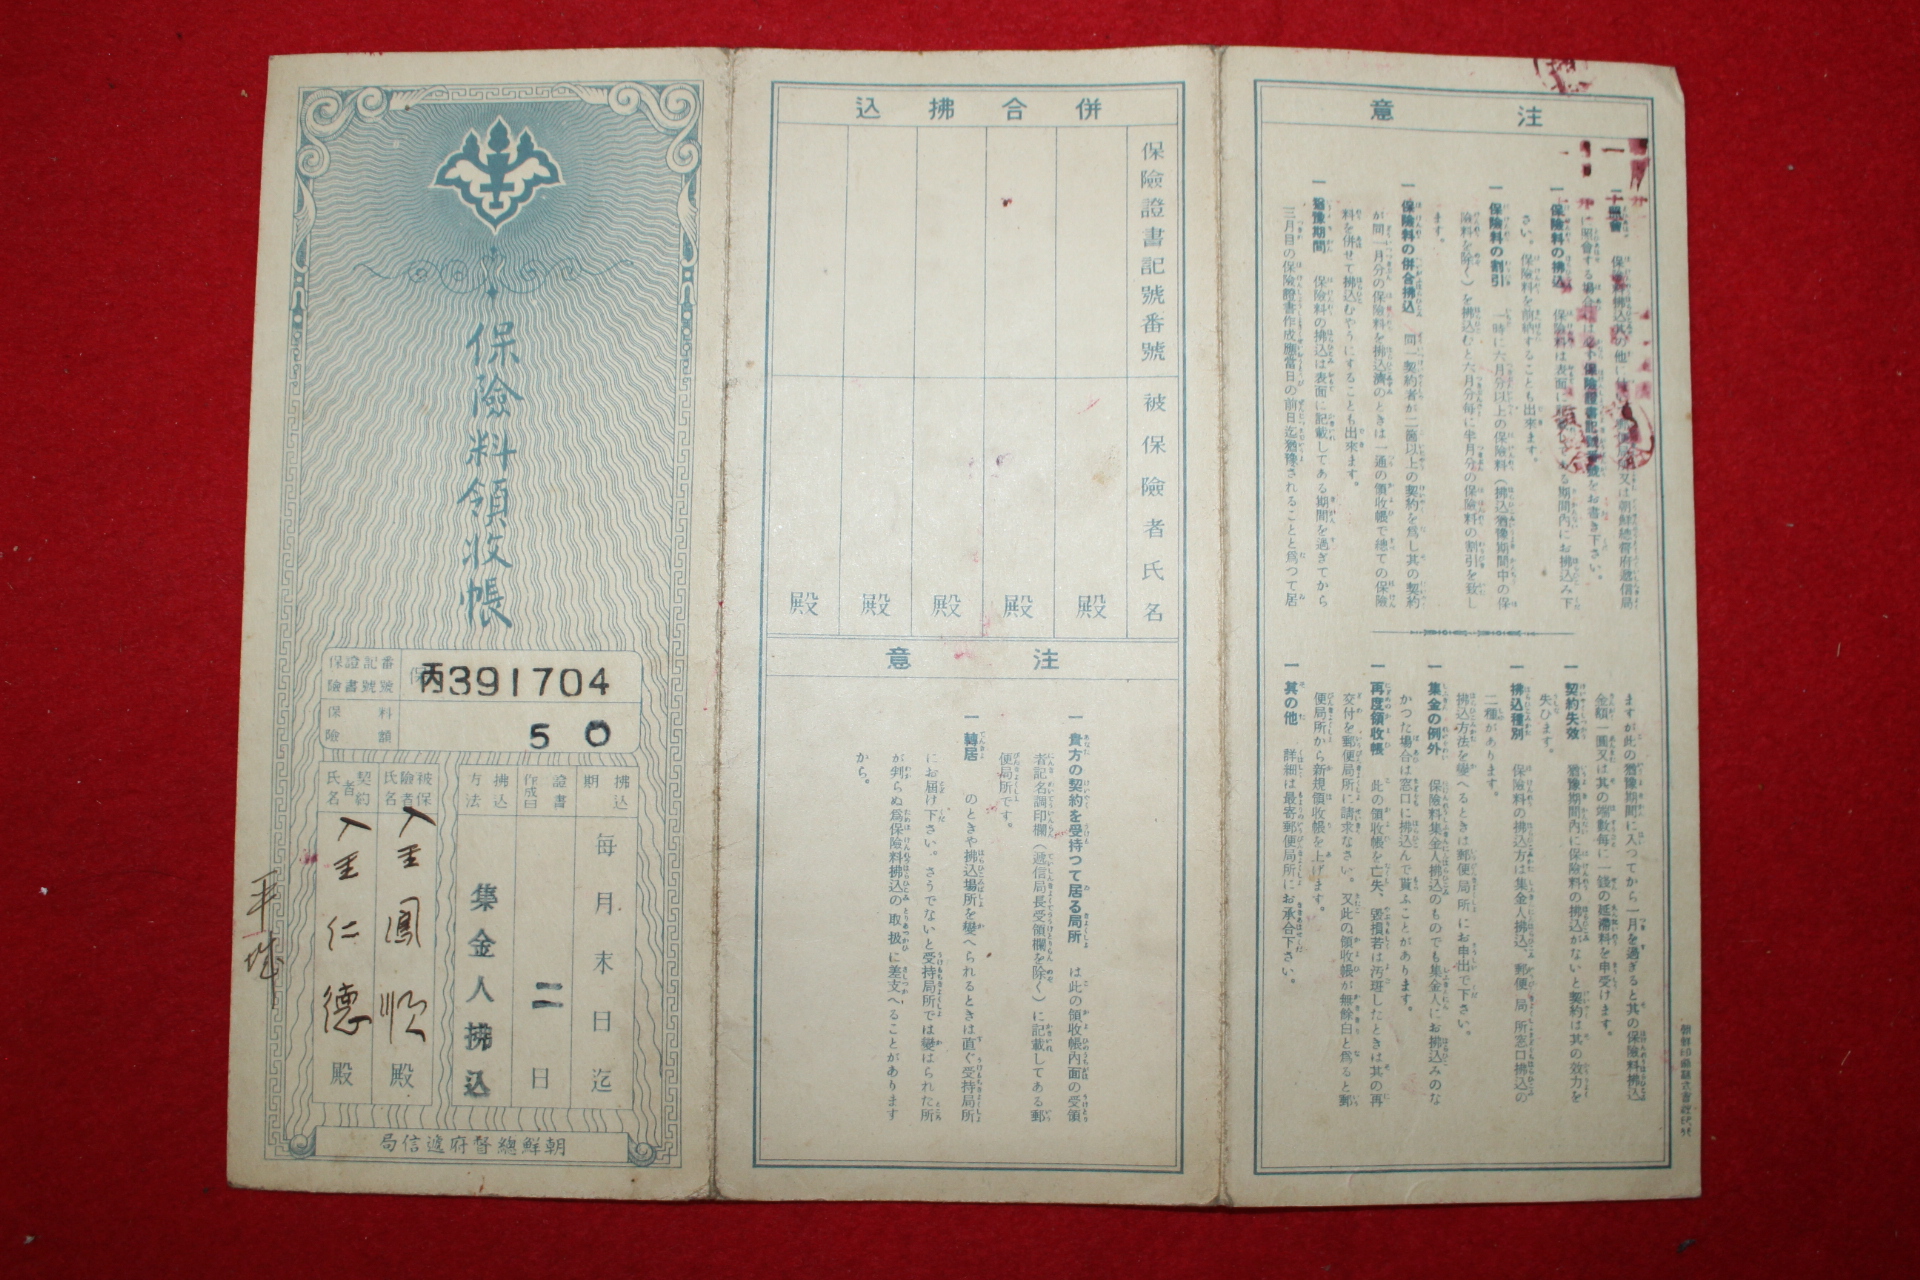 保險料領收帳
保險證書記號番號
保丙391704
保險料額
50
拂込期
每月末日迄
證書作成日
二日
拂込方法
集金人拂込
被保險者氏名
鳳順殿
契約者氏名
仁德殿
朝鮮總督府遞信局
併合拂込
保險證書記號番號
被保險者氏名
殿
殿
殿
殿
殿
注意
一 貴方の契約を受持つて居る局所 は此の領收帳內面の受領
者記名調印欄（遞信局長受領欄を除く）に記載してある郵
便局所です。
一 轉居 のときや拂込場所を變へられるときは直ぐ受持局所
にお屆け下さい。さうでないと受持局所では變はられた所
が判らぬ爲保險料拂込の取扱に差支へることがあります
から。
注意
一 照會
一 保險料の拂込 保險料は表面に
る期間內にお拂込み下
さい。保險料を前納することも出來ます。
一 保險料の割引 一時に六月分以上の保險料（拂込猶豫期間中の保
險料を除く）を拂込むと六月分每に半月分の保險料の割引を致し
ます。
一 保險料の併合拂込 同一契約者が二箇以上の契約を爲し其の契約
が同一月分の保險料を拂込濟のときは一通の領收帳で總ての保險
料を併せて拂込むやうにすることも出來ます。
一 猶豫期間 保險料の拂込は表面に記載してある期間を過ぎてから
三月目の保險證書作成應當日の前日迄猶豫されることと爲つて居
ますが此の猶豫期間に入つてから一月を過ぎると其の保險料拂込
金額一圓又は其の端數每に一錢の延滯料を申受けます。
一 契約失效 猶豫期間內に保險料の拂込がないと契約は其の效力を
失ひます。
一 拂込種別 保險料の拂込方は集金人拂込、郵便局所窓口拂込の
二種があります。
拂込方法を變へるときは郵便局所にお申出で下さい。
一 集金の例外 保險料集金人拂込のものでも集金人にお拂込みのな
かつた場合は窓口に拂込んで貰ふことがあります。
一 再度領收帳 此の領收帳を亡失、毀損若は汚斑したときは其の再
交付を郵便局所に請求なさい。又此の領收帳が無餘白と爲ると郵
便局所から新規領收帳を上げます。
一 其の他 詳細は最寄郵便局所にお承合下さい。